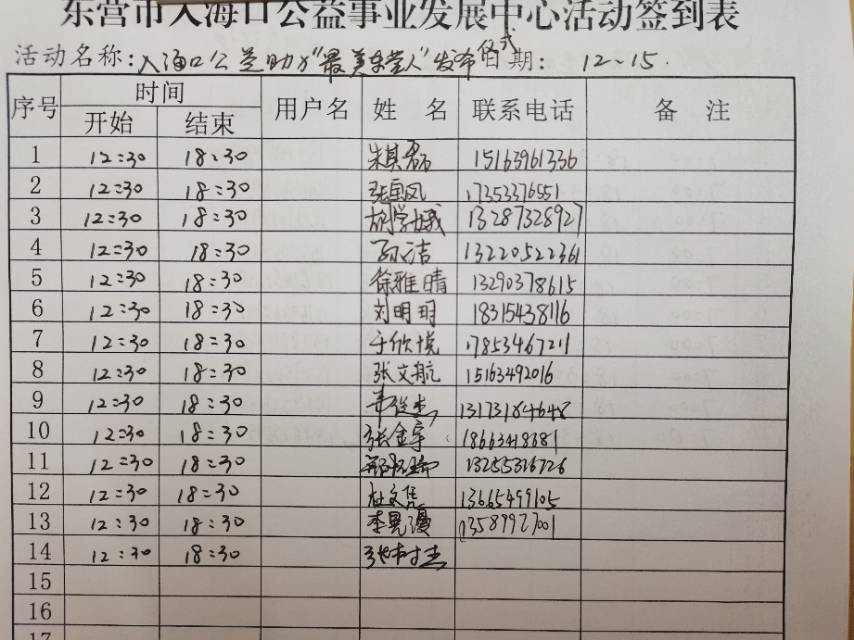 东营市入海口公益事业发展中心活动签到表
活动名称:入海口公益助力"最美东营人"发布仪式 日期: 12-15.
序号 时间 用户名 姓 名 联系电话 备 注
开始 结束
1 12:30 18:30 朱其磊 15163961336
2 12:30 18:30 张国凤 17352376551
3 12:30 18:30 胡学娥 13287328927
4 12:30 18:30 孙洁 13220522361
5 12:30 18:30 徐雅晴 13290378615
6 12:30 18:30 刘明明 18315438116
7 12:30 18:30 于欣悦 17853467211
8 12:30 18:30 张文航 15163492016
9 12:30 18:30 13173184648
10 12:30 18:30 张金宇 18663418681
11 12:30 18:30 13255316726
12 12:30 18:30 杜文隽 13665499105
13 12:30 18:30 李晃漫 13589927001
14 12:30 18:30 张树杰
15
16
17